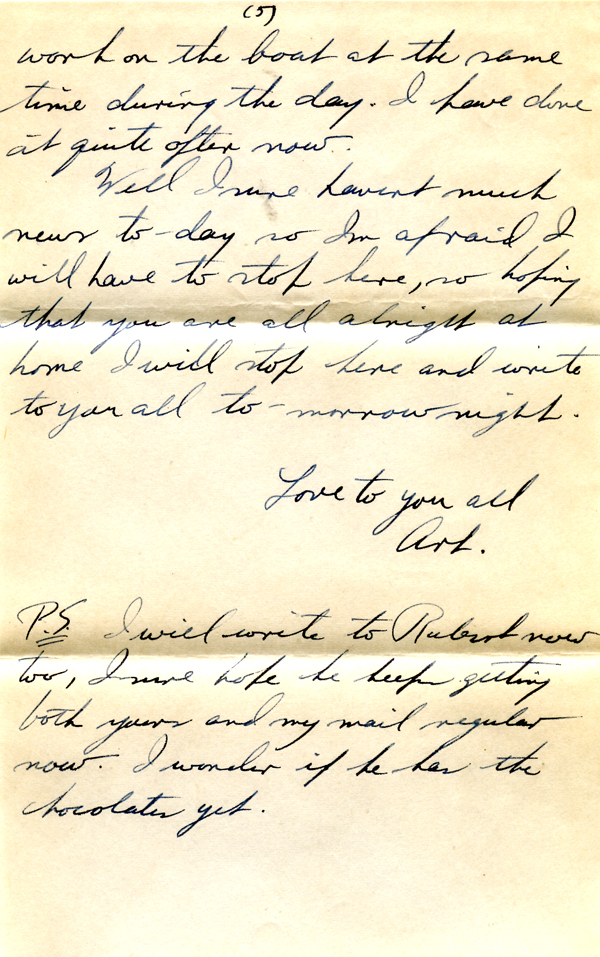 (5)
work on the boat at the same
time during the day. I have done
it quite often now.
Well I sure havent much
news to-day so Im afraid I
will have to stop here, so hoping
that you are all alright at
home I will stop here and write
to you all to-morrow night.
Love to you all
Art.
P.S. I will write to Robert now
too, I sure hope he keeps getting
both yours and my mail regular
now. I wonder if he has the
chocolates yet.